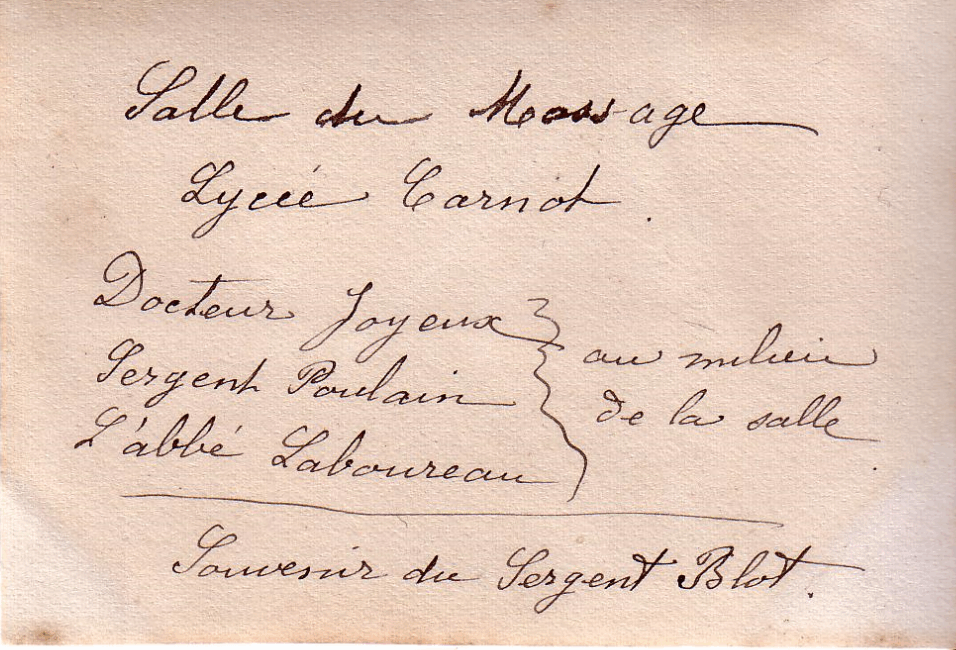 Salle du Massage
Lycée Carnot.
Docteur Joyeux
Sergent Poulain
L'abbé Laboureau
au milieu
de la salle
Souvenir du Sergent Blot.